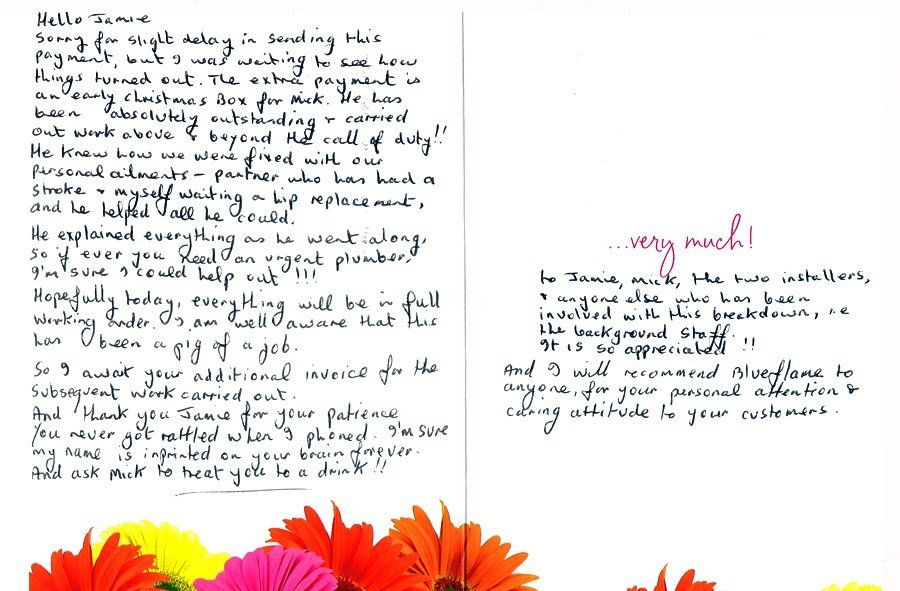 Hello Jamie
Sorry for slight delay in sending this
payment, but I was waiting to see how
things turned out. The extra payment is
an early Christmas Box for Mick. He has
been absolutely outstanding & carried
out work above & beyond the call of duty!!
He knew how we were fixed with our
personal ailments - partner who has had a
stroke & myself waiting a hip replacement,
and he helped all he could.
He explained everything as he went along,
so if ever you need an urgent plumber,
I'm sure I could help out !!!
Hopefully today, everything will be in full
working order. I am well aware that this
has been a pig of a job.
So I await your additional invoice for the
subsequent work carried out.
And thank you Jamie for your patience
You never got rattled when I phoned. I'm sure
my name is inprinted on your brain forever.
And ask Mick to treat you to a drink!!
...very much!
to Jamie, Mick, the two installers,
& anyone else who has been
involved with this breakdown, i.e
the background staff.
It is so appreciated !!
And I will recommend Blueflame to
anyone, for your personal attention &
caring attitude to your customers.